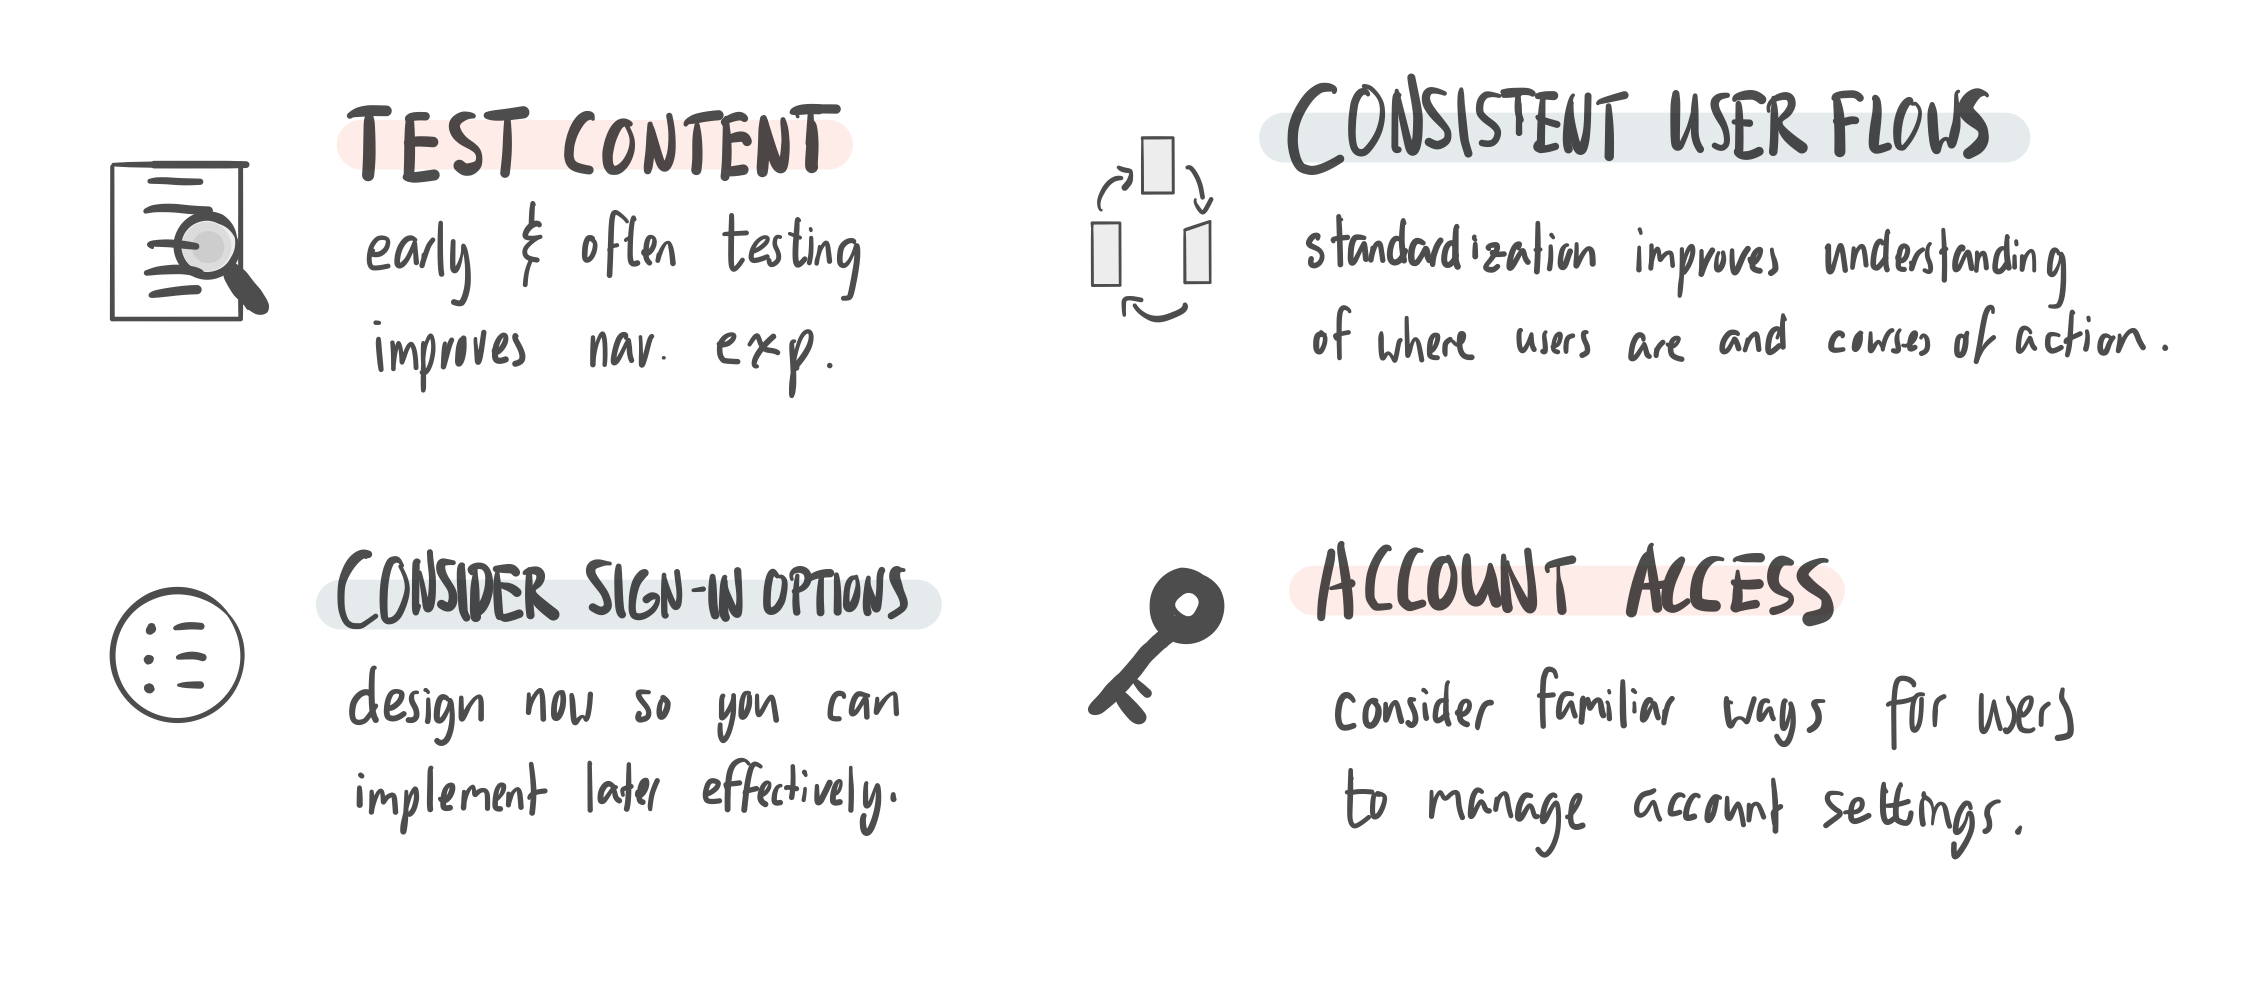 TEST CONTENT
early & often testing
improves nav. exp.
CONSISTENT USER FLOWS
standardization improves understanding
of where users are and courses of action.
CONSIDER SIGN-IN OPTIONS
design now so you can
implement later effectively.
ACCOUNT ACCESS
consider familiar ways for users
to manage account settings.